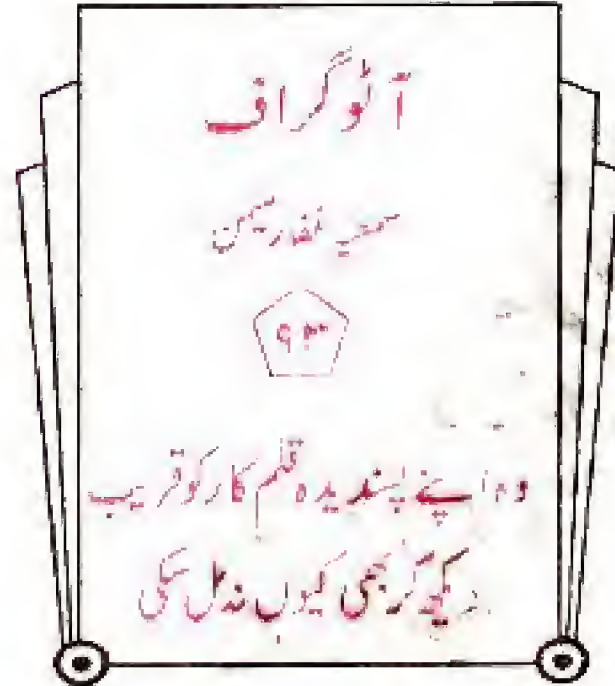 آٹو گراف
غفار میمن
۹۳
وہ اپنے پسندیدہ قلم کار کو قریب
دیکھ کر بھی کیوں نہ مل سکی